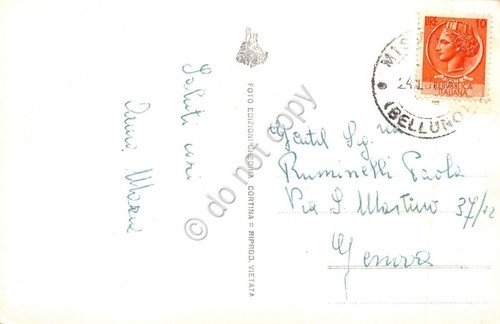 Saluti cari
Maria
FOTO EDIZIONI GHEDINA CORTINA = RIPROD. VIETATA
do not copy
LIRE 10
POSTE
REPUBBLICA
ITALIANA
(BELLUNO)
Gentil Sig.na
Ruminelli Paola
Via S. Martino 37/12
Genova